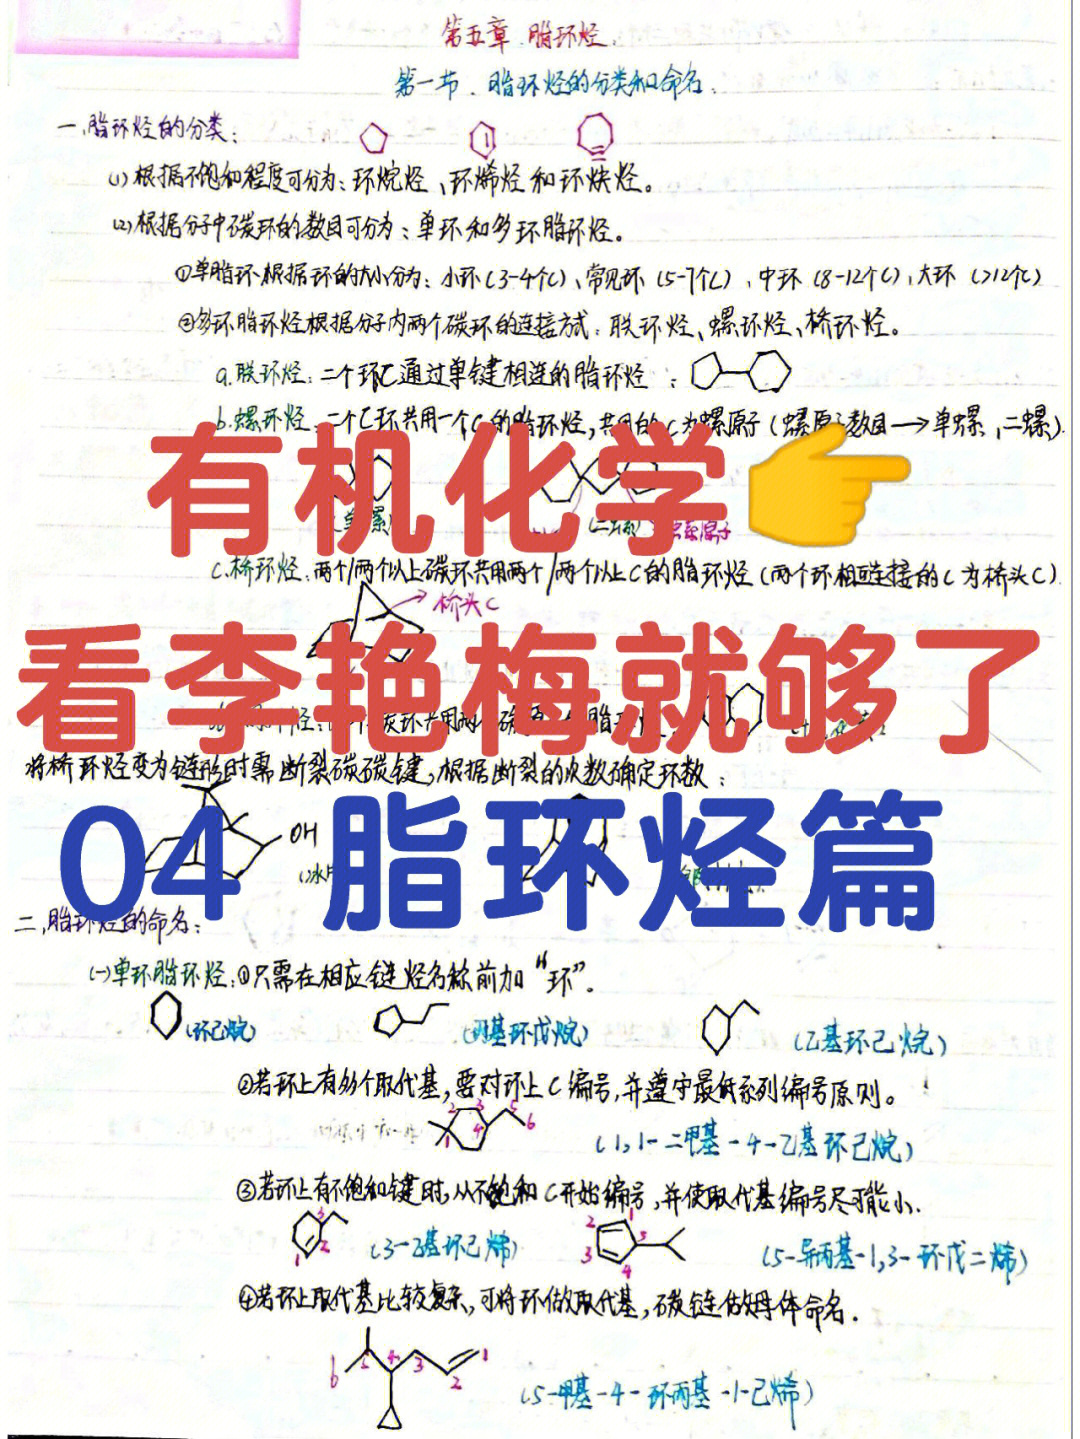 第五章 脂环烃
第一节. 脂环烃的分类和命名.
一.脂环烃的分类:
(1)根据不饱和程度可分为:环烷烃、环烯烃和环炔烃。
(2)根据分子中碳环的数目可分为:单环和多环脂环烃。
①单脂环根据环的大小分为:小环(3-4个C)、常见环(5-7个C),中环(8-12个C),大环(>12个C)
②多环脂环烃根据分子内两个碳环的连接方式:联环烃、螺环烃、桥环烃。
a.联环烃:二个环C通过单键相连的脂环烃:
b.螺环烃:二个C环共用一个C的脂环烃,共用的C为螺原子(螺原子数目→单螺、二螺).
有机化学👉
(二螺)
c.桥环烃:两个/两个以上碳环共用两个/两个以上C的脂环烃(两个环相连接的C为桥头C).
桥头C
看李艳梅就够了
将桥环烃变为链形时需断裂碳碳键,根据断裂的次数确定环数:
OH
04 脂环烃篇
二,脂环烃的命名:
(一)单环脂环烃:①只需在相应链烃名称前加“环”.
(环己烷) (丙基环戊烷) (乙基环己烷)
②若环上有多个取代基,要对环上C编号,并遵守最低系列编号原则。
1 2 3 4 5 6 (1,1-二甲基-4-乙基环己烷)
③若环上有不饱和键时,从不饱和C开始编号,并使取代基编号尽可能小.
1 2 3 (3-乙基环己烯) 1 2 3 4 5 (5-异丙基-1,3-环戊二烯)
④若环上取代基比较复杂,可将环做取代基,碳链做母体命名.
6 5 4 3 2 1 (5-甲基-4-环丙基-1-己烯)